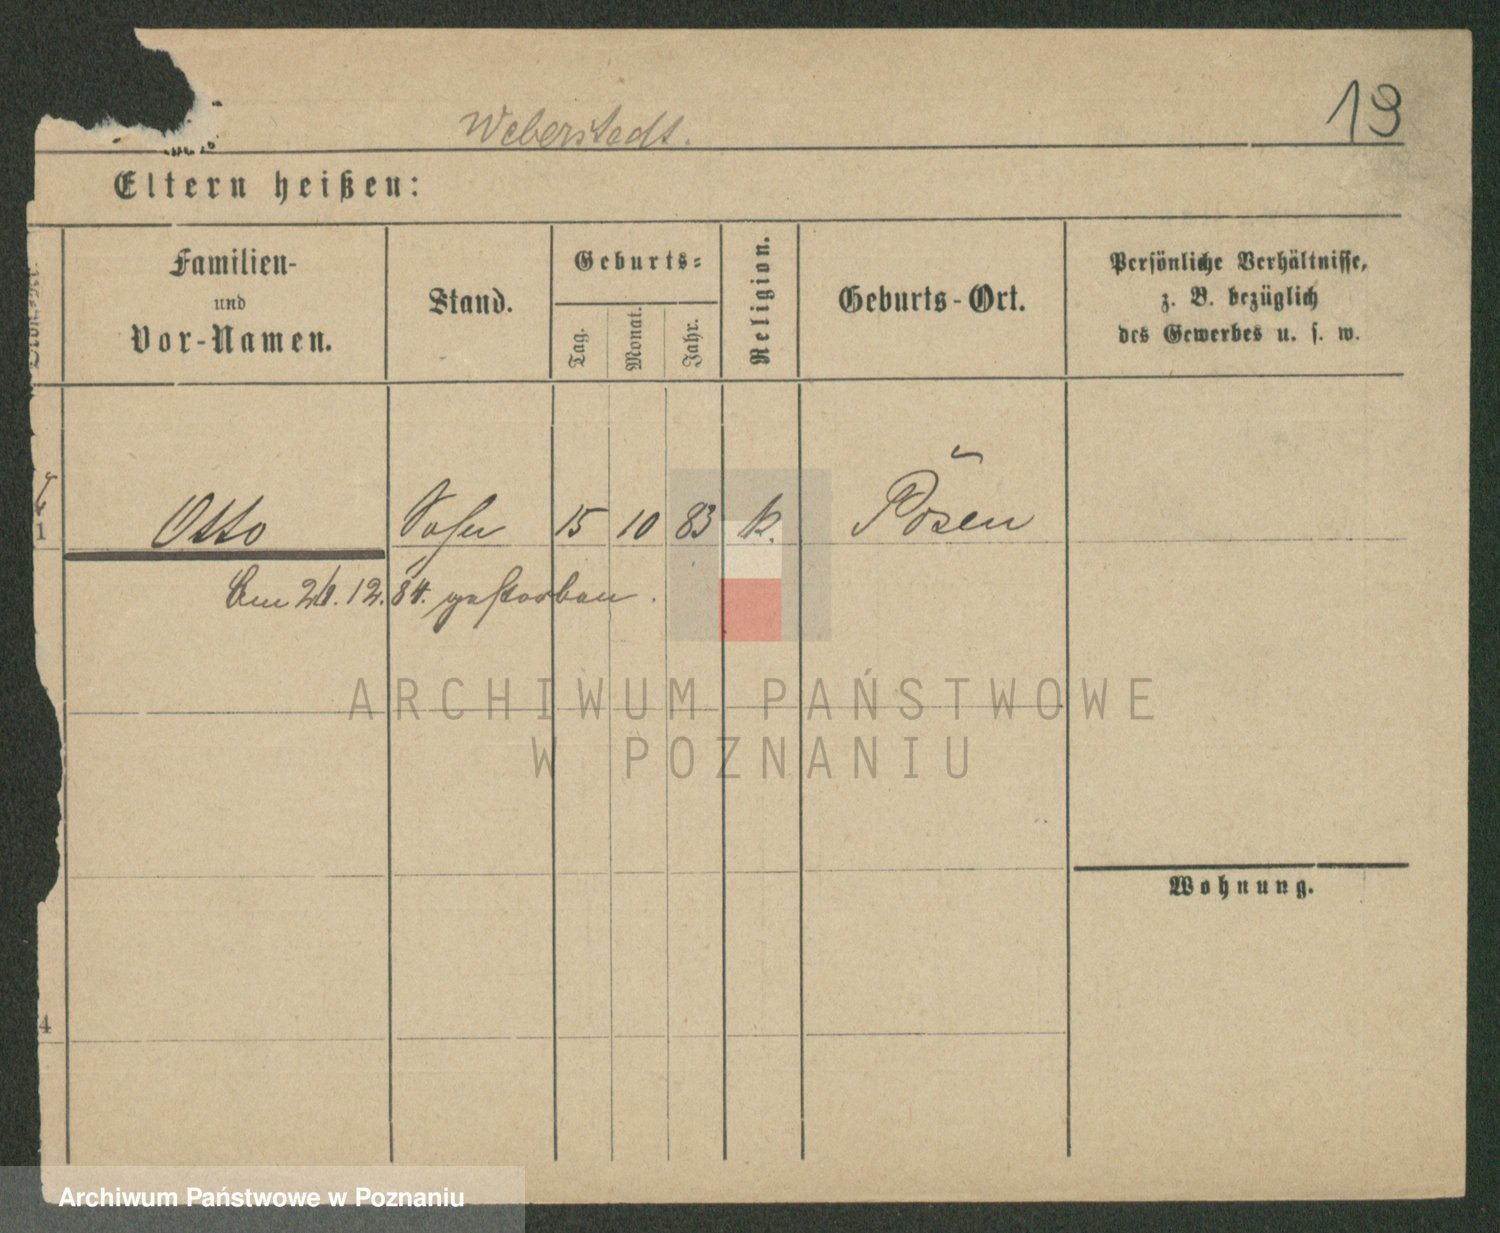 19
Weberstedt.
Eltern heißen:
Familien-
und
Vor-Namen.
Stand.
Geburts-
Tag.
Monat.
Jahr.
Religion.
Geburts-Ort.
Persönliche Verhältnisse,
z. B. bezüglich
des Gewerbes u. s. w.
1 Otto Sohn 15 10 83 k. Posen
12. 84. gestorben.
ARCHIWUM PAŃSTWOWE
W POZNANIU
Wohnung.
4
Archiwum Państwowe w Poznaniu